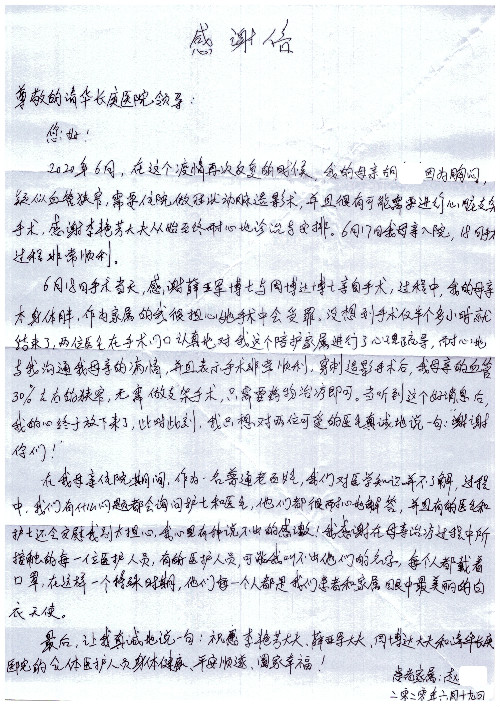 感谢信
尊敬的清华长庚医院领导:
您好!
2020年6月,在这个疫情再次反复的时候,我的母亲胡 因为胸闷,
疑似血管狭窄,需要住院做冠状动脉造影术,并且很有可能需要进行心脏支架
手术,感谢李艳芳大夫从始至终耐心地诊治与安排。6月17日我母亲入院,
过程非常顺利。
6月18日手术当天,感谢薛亚军博士与周博达博士亲自手术,过程中,我的母亲
本身体胖,作为家属的我很担心她手术中会受罪,没想到手术仅半个多小时就
结束了,两位医生在手术门口认真地对我这个陪护家属进行了心理疏导,耐心地
与我沟通我母亲的病情,并且表示手术非常顺利,穿刺造影手术后,我母亲的血管
30%左右的狭窄,无需做支架手术,只需要药物治疗即可。当听到这个好消息后,
我的心终于放下来了,此时此刻,我只想对两位可爱的医生真诚地说一句:谢谢
你们!
在我母亲住院期间,作为一名普通老百姓,我们对医学知识并不了解,过程
中,我们有什么问题都会询问护士和医生,他们都很耐心地解答,并且有的医生和
护士还会安慰我别太担心,我心里有种说不出的感激!我感谢在母亲治疗过程中所
接触的每一位医护人员,有的医护人员,可能我叫不出他们的名字,每个人都戴着
口罩,在这样一个特殊时期,他们每一个人都是我们患者和家属眼中最美丽的白
衣天使。
最后,让我真诚地说一句:祝愿李艳芳大夫、薛亚军大夫、周博达大夫和清华长庚
医院的全体医护人员身体健康、平安顺遂、阖家幸福!
患者家属:赵
二零二零年六月十九日